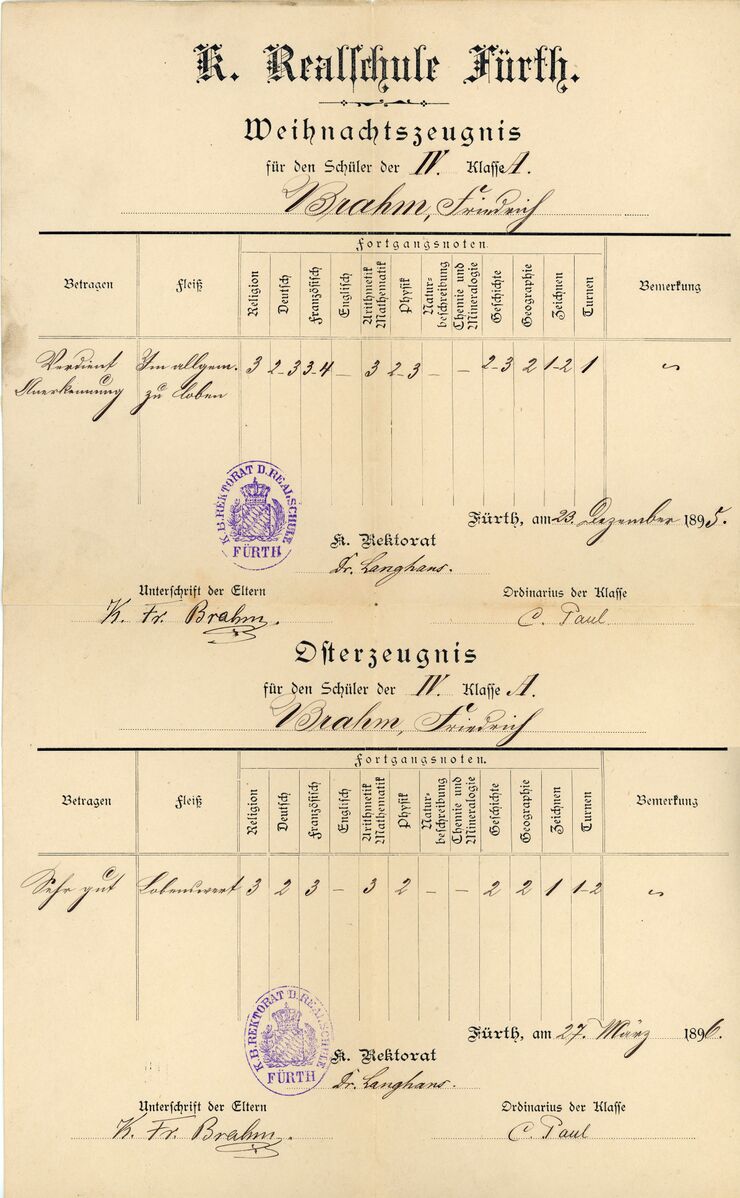 K. Realschule Fürth.
Weihnachtszeugnis
für den Schüler der IV. Klasse A.
Brahm, Friedrich
Fortgangsnoten.
Betragen Fleiß Religion Deutsch Französisch Englisch Arithmetik Mathematik Physik Natur-beschreibung Chemie und Mineralogie Geschichte Geographie Zeichnen Turnen Bemerkung
Verdient Im allgem. 3 2-3 3-4 – 3 2-3 – – 2-3 2 1-2 1 "
Anerkennung zu loben
K. B. REKTORAT D. REALSCHULE
FÜRTH
Fürth, am 23. Dezember 1895.
K. Rektorat
Dr. Langhans.
Unterschrift der Eltern Ordinarius der Klasse
K. Fr. Brahm. C. Paul
Osterzeugnis
für den Schüler der IV. Klasse A.
Brahm, Friedrich
Fortgangsnoten.
Betragen Fleiß Religion Deutsch Französisch Englisch Arithmetik Mathematik Physik Natur-beschreibung Chemie und Mineralogie Geschichte Geographie Zeichnen Turnen Bemerkung
Sehr gut Lobenswert 3 2 3 – 3 2 – – 2 2 1 1-2 "
K. B. REKTORAT D. REALSCHULE
FÜRTH
Fürth, am 27. März 1896.
K. Rektorat
Dr. Langhans.
Unterschrift der Eltern Ordinarius der Klasse
K. Fr. Brahm. C. Paul